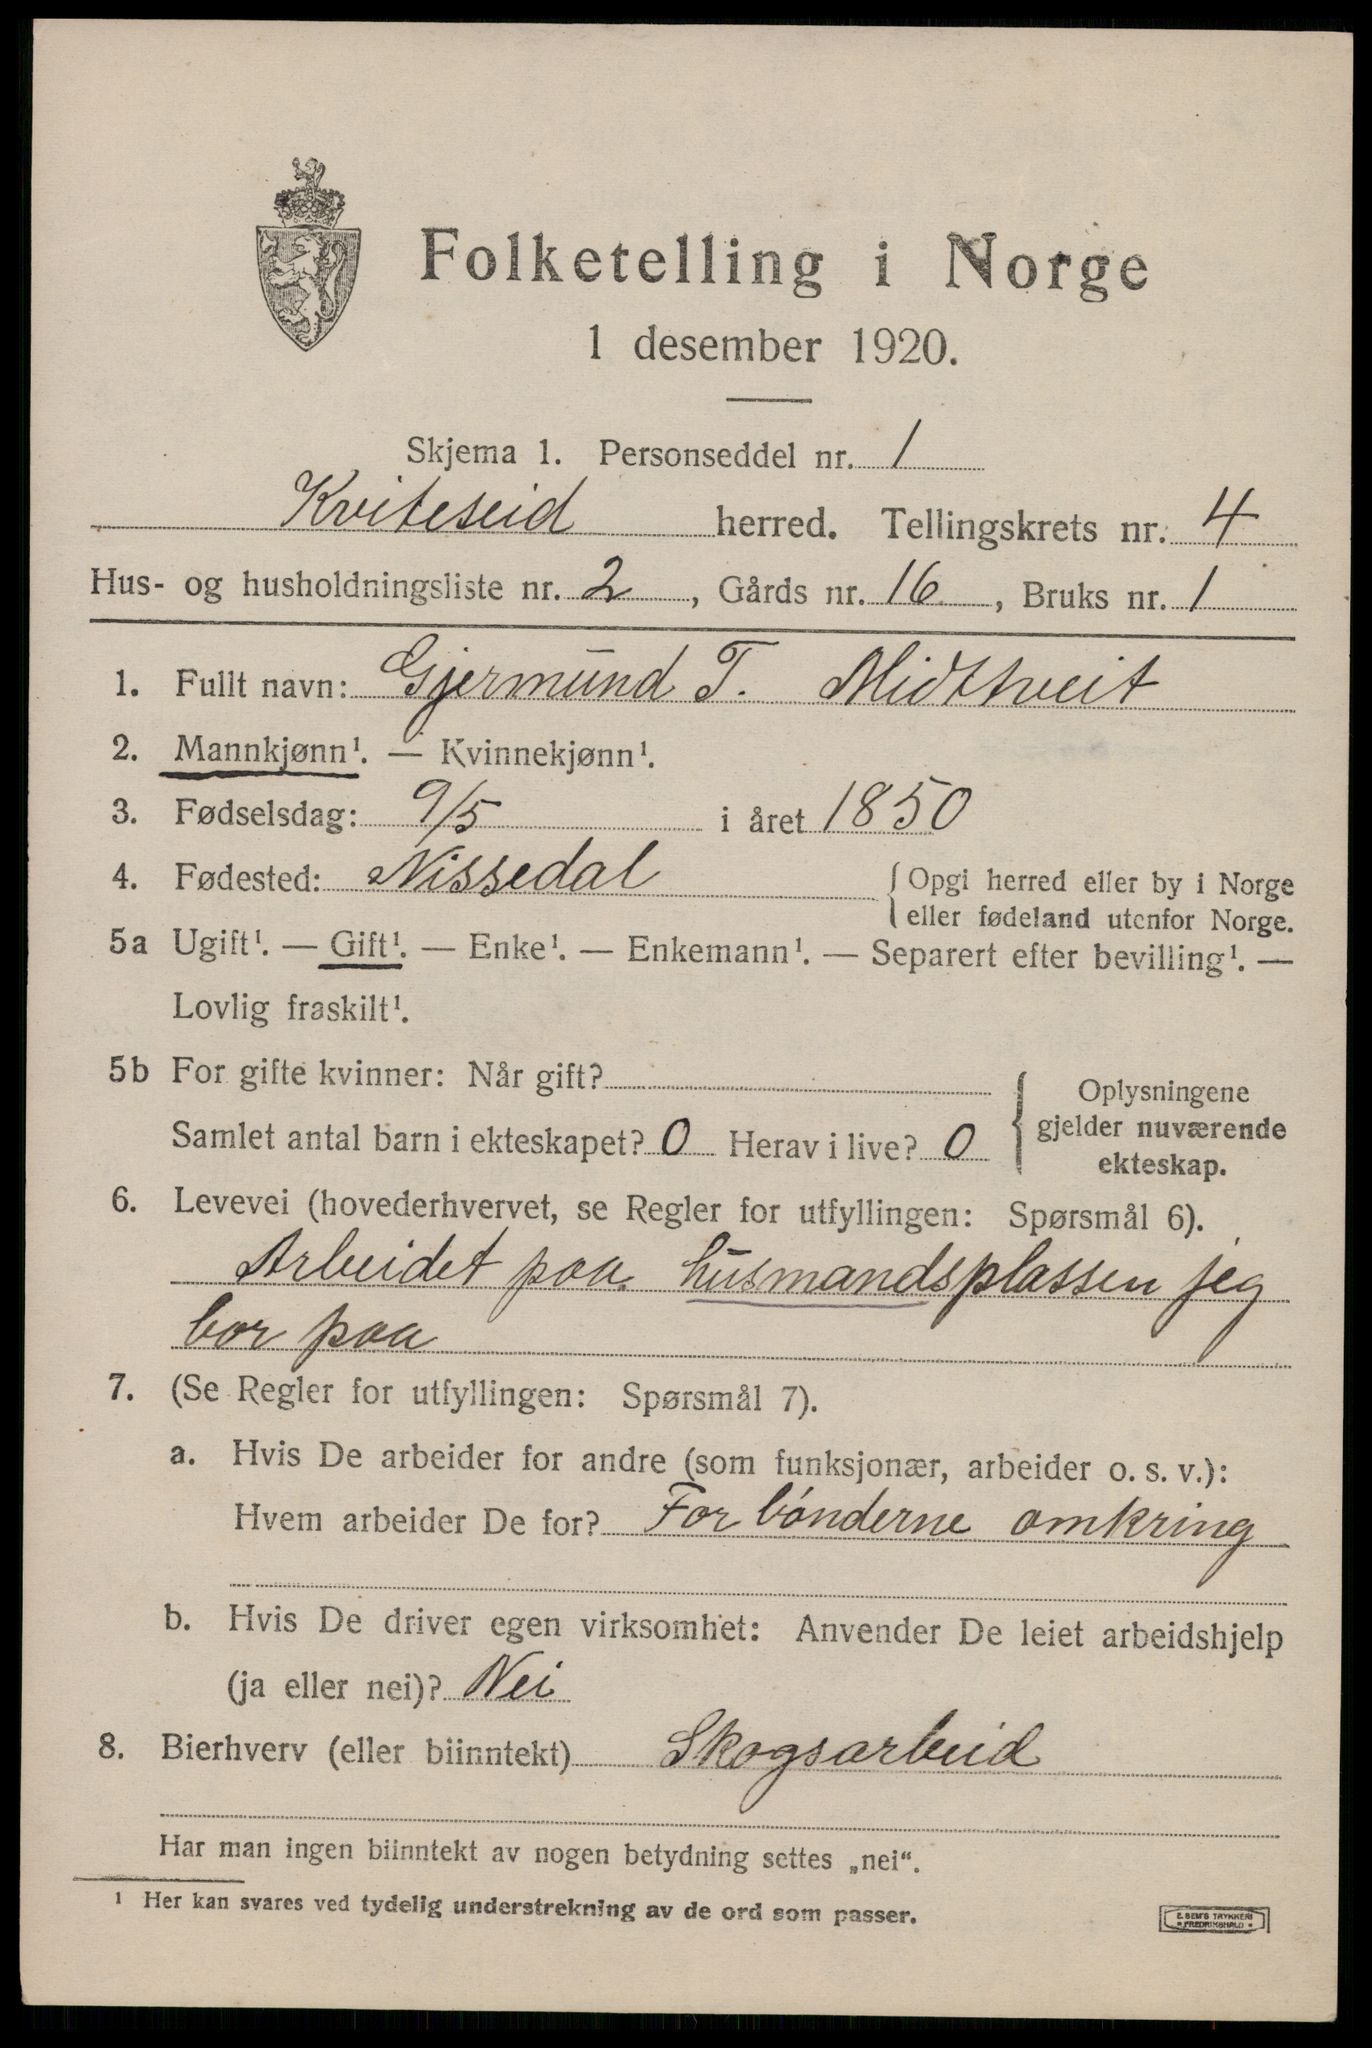 Folketelling i Norge
1 desember 1920.
Skjema 1. Personseddel nr. 1
Kviteseid herred. Tellingskrets nr. 4
Hus- og husholdningsliste nr. 2, Gårds nr. 16, Bruks nr. 1
1. Fullt navn: Gjermund T. Midtveit
2. Mannkjønn¹. — Kvinnekjønn¹.
3. Fødselsdag: 9/5 i året 1850
4. Fødested: Nissedal { Opgi herred eller by i Norge
eller fødeland utenfor Norge.
5a Ugift¹. — Gift¹. — Enke¹. — Enkemann¹. — Separert efter bevilling¹. —
Lovlig fraskilt¹.
5b For gifte kvinner: Når gift?
Samlet antal barn i ekteskapet? 0 Herav i live? 0
{ Oplysningene
gjelder nuværende
ekteskap.
6. Levevei (hovederhvervet, se Regler for utfyllingen: Spørsmål 6).
Arbeidet paa husmandsplassen jeg
bor paa
7. (Se Regler for utfyllingen: Spørsmål 7).
a. Hvis De arbeider for andre (som funksjonær, arbeider o. s. v.):
Hvem arbeider De for? For bónderne omkring
b. Hvis De driver egen virksomhet: Anvender De leiet arbeidshjelp
(ja eller nei)? Nei
8. Bierhverv (eller biinntekt) Skogsarbeid
Har man ingen biinntekt av nogen betydning settes „nei“.
¹ Her kan svares ved tydelig understrekning av de ord som passer.
E. SEM'S TRYKKERI
• FREDRIKSHALD •